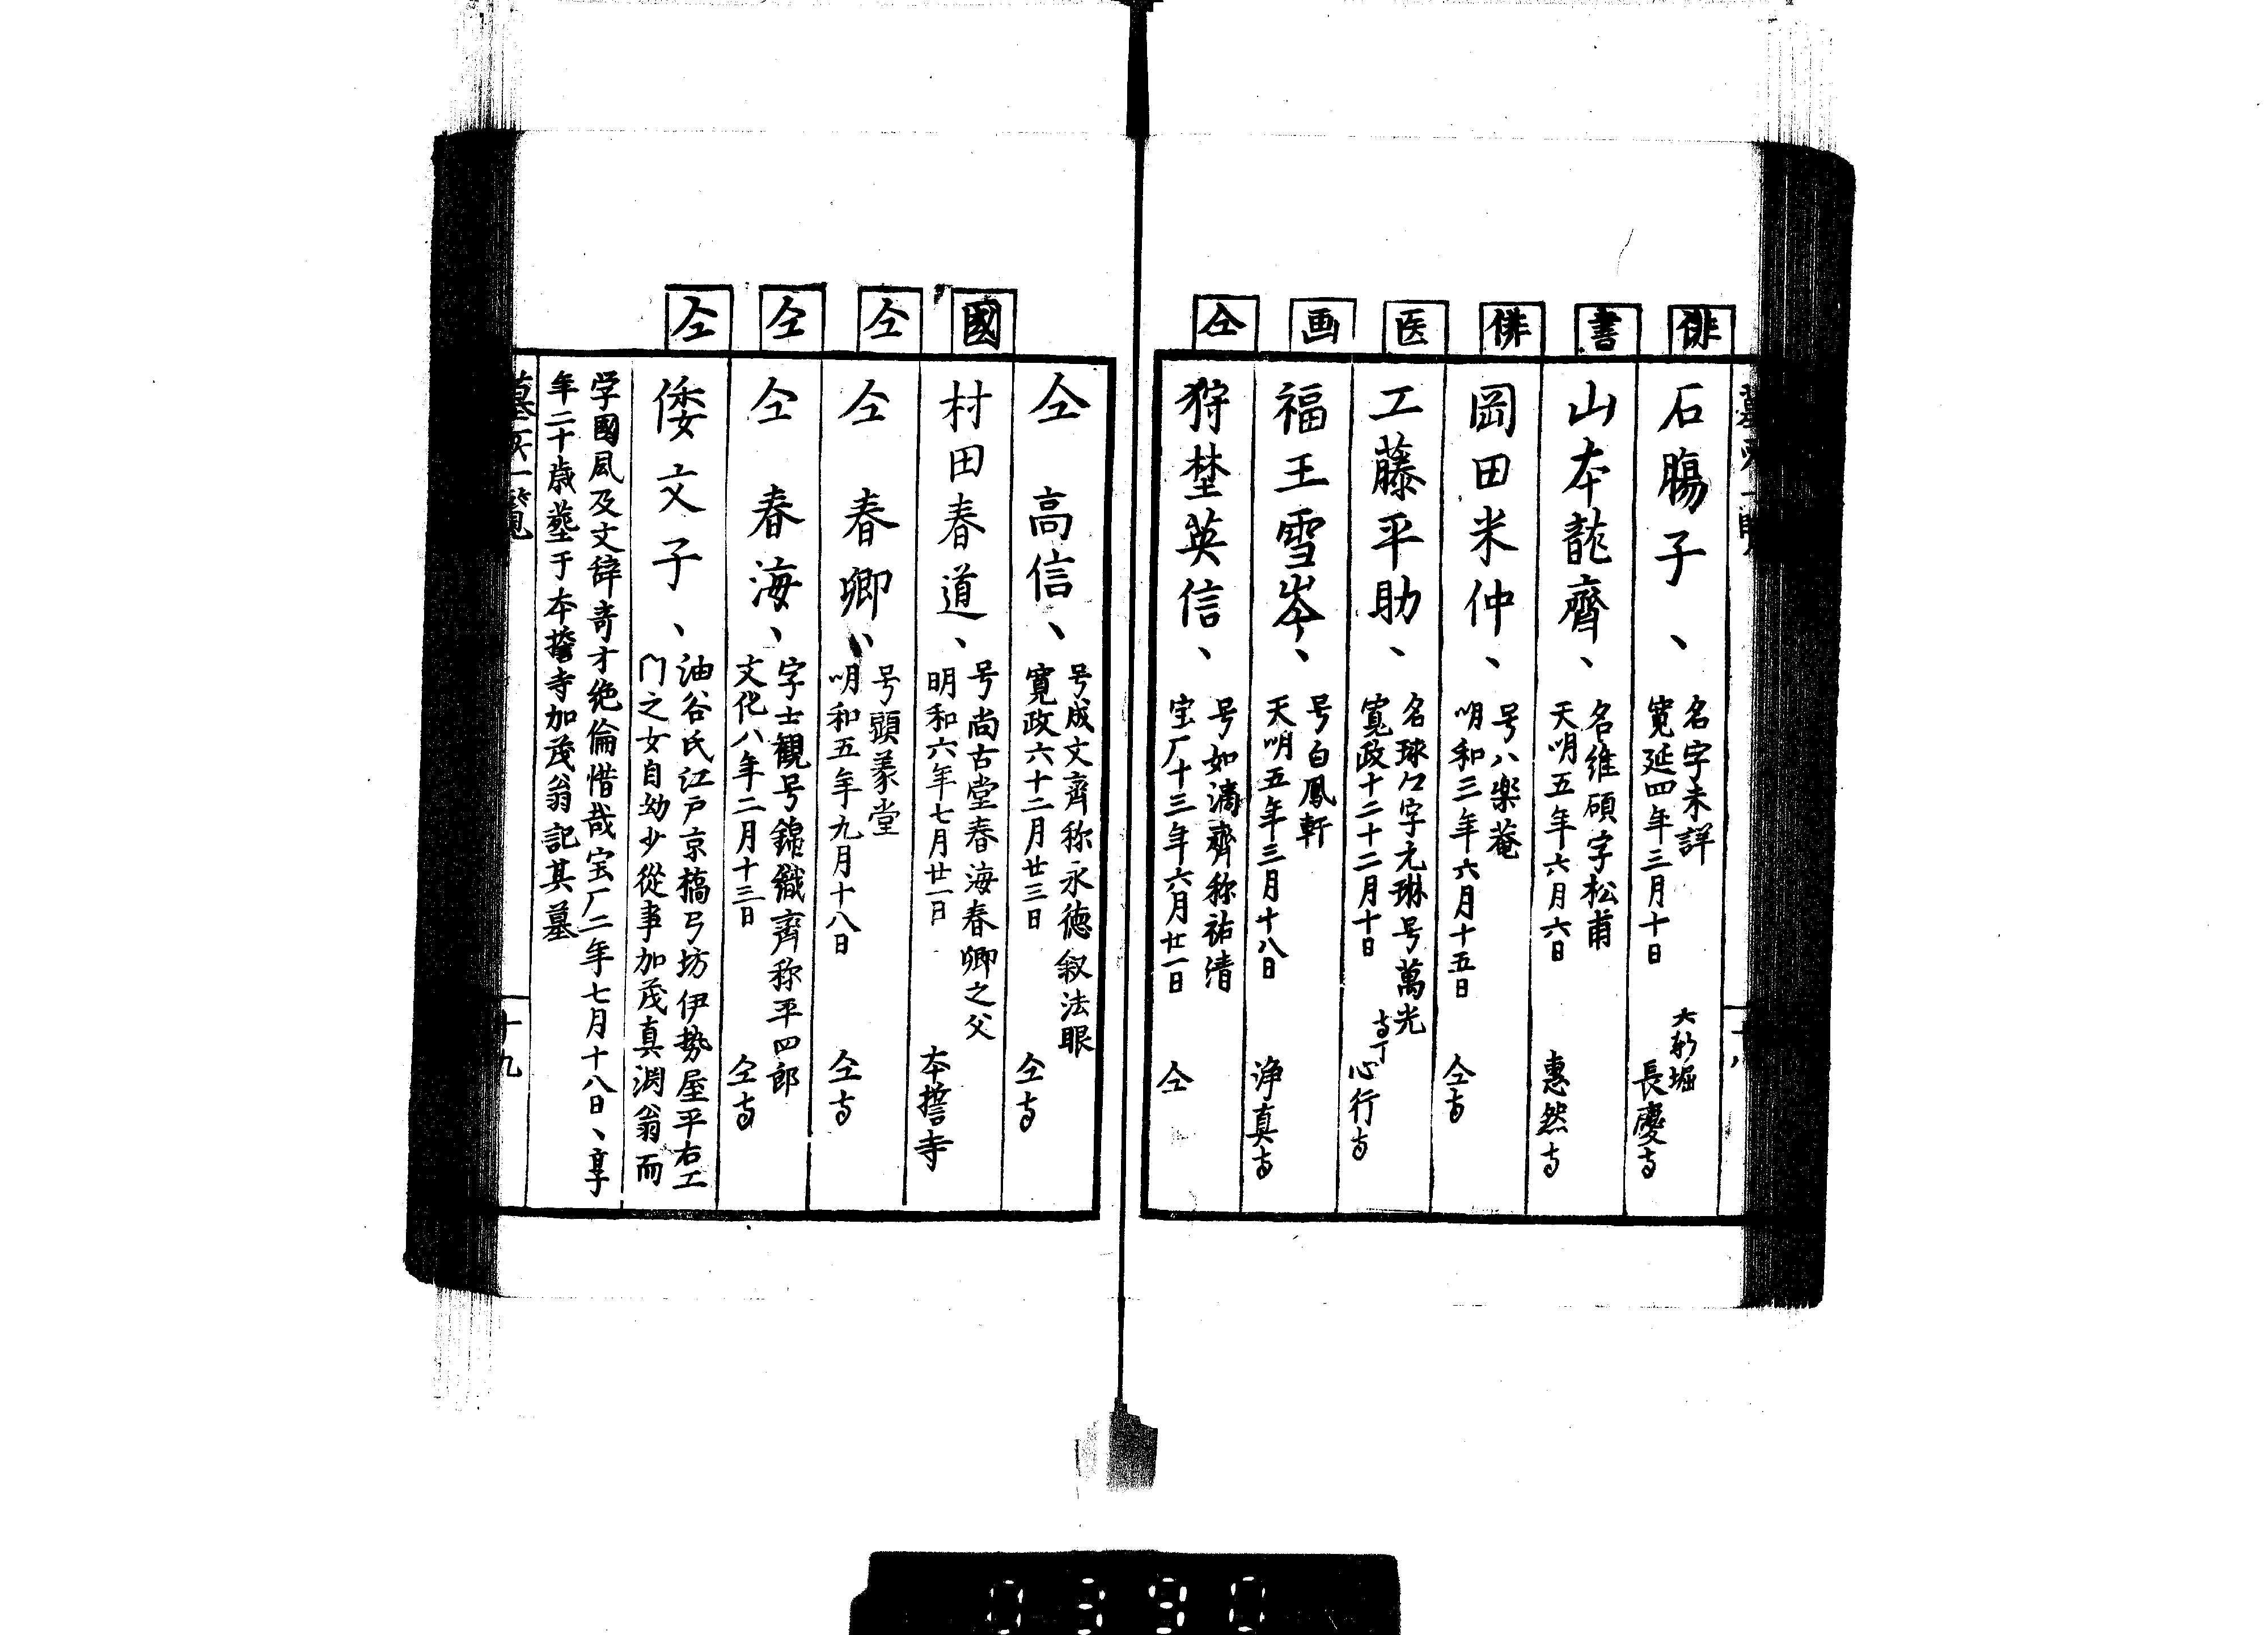 俳
石腸子、
名字未詳
寛延四年三月十日
長慶寺
書
山本龍齊、
名維碩字松甫
天明五年六月六日
惠然寺
俳
岡田米仲、
号八楽菴
明和三年六月十五日
仝寺
医
工藤平助、
名球卜字元琳号萬光
寛政十二十二月十日
寺丁
心行寺
画
福王雪岑、
号白鳳軒
天明五年三月十八日
浄真寺
仝
狩埜英信、
号如滴齊称祐清
宝厂十三年六月廿一日
仝
仝 高信、
号成文齊称永徳叙法眼
寛政六十二月廿三日
仝寺
國
村田春道、
号尚古堂春海春卿之父
明和六年七月廿一日
本誓寺
仝
仝 春卿、
号顕彖堂
明和五年九月十八日
仝寺
仝
仝 春海、
字士観号錦織齊称平四郎
文化八年二月十三日
仝寺
仝
倭文子、
油谷氏江戸京橋弓坊伊勢屋平右工
門之女自幼少從事加茂真渕翁而
学國風及文辞奇才絶倫惜哉宝厂二年七月十八日、享
年二十歳葬于本誓寺加茂翁記其墓
十九